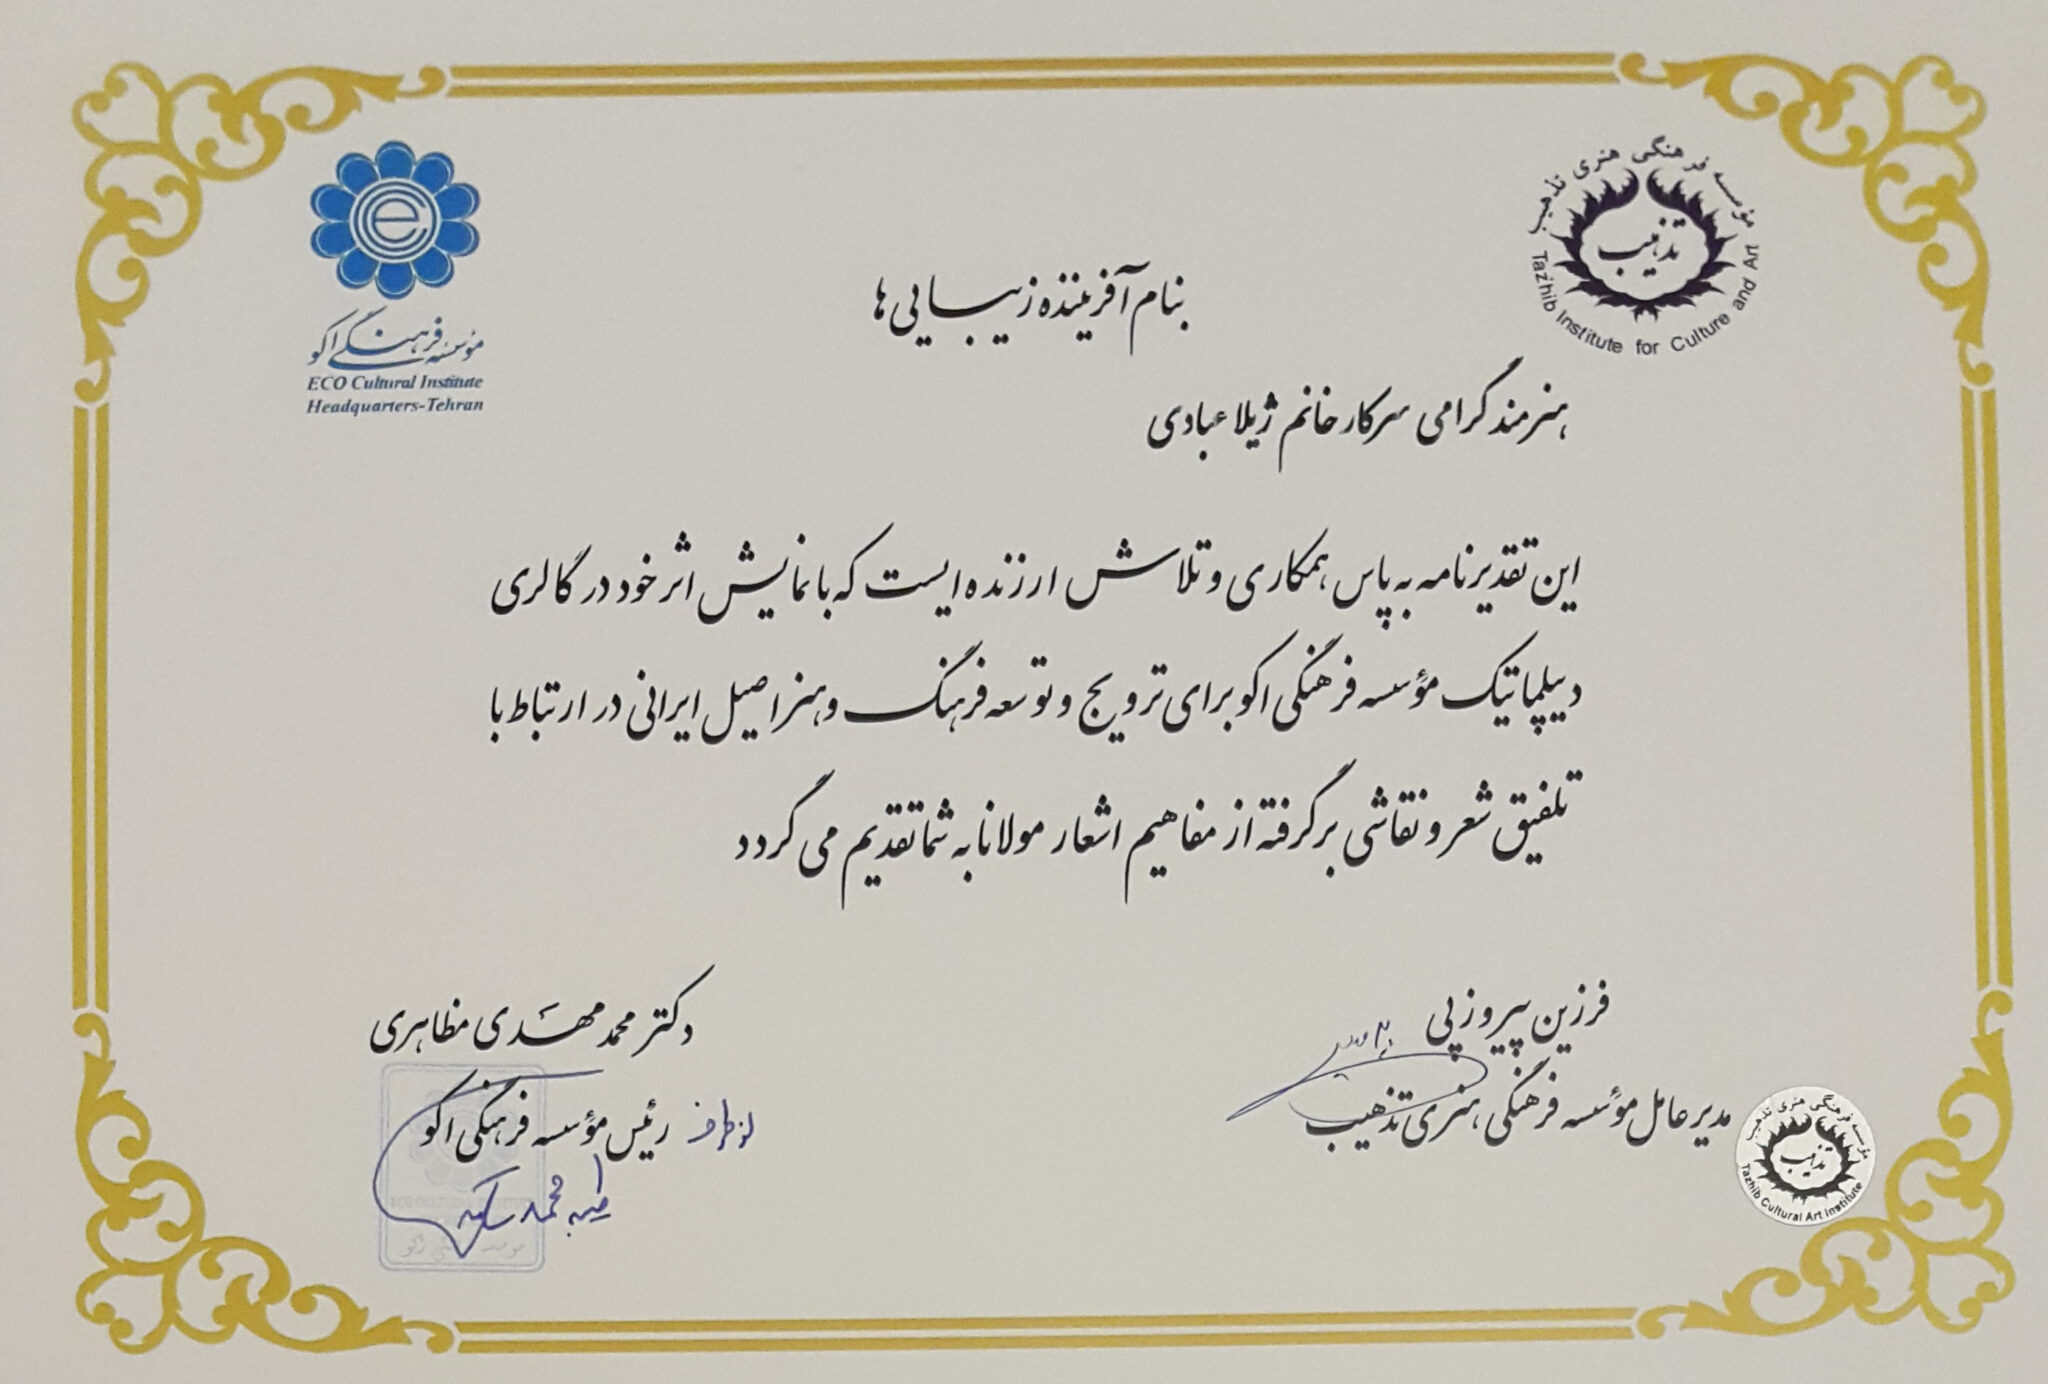 مؤسسه فرهنگی هنری تذهیب
تذهیب
Tazhib Institute for Culture and Art
e
مؤسسه فرهنگی اکو
ECO Cultural Institute
Headquarters-Tehran
بنام آفریننده زیبایی ها
هنرمند گرامی سرکار خانم ژیلا عبادی
این تقدیرنامه به پاس همکاری و تلاش ارزنده ایست که با نمایش اثر خود در گالری
دیپلماتیک مؤسسه فرهنگی اکو برای ترویج و توسعه فرهنگ و هنر اصیل ایرانی در ارتباط با
تلفیق شعر و نقاشی برگرفته از مفاهیم اشعار مولانا به شما تقدیم می گردد
فرزین پیروزپی
مدیر عامل مؤسسه فرهنگی هنری تذهیب
مؤسسه فرهنگی هنری تذهیب
تذهیب
Tazhib Cultural Art Institute
دکتر محمد مهدی مظاهری
از طرف رئیس مؤسسه فرهنگی اکو